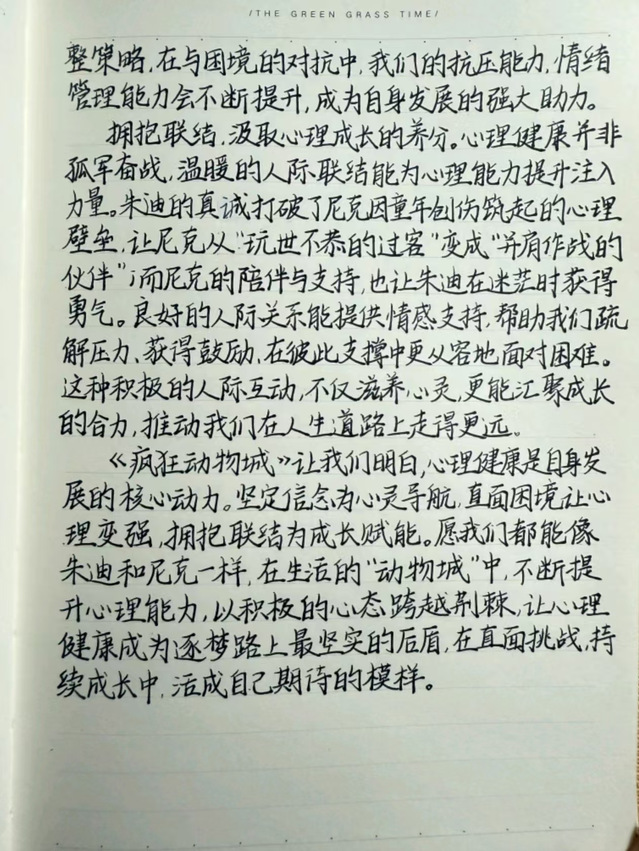 /THE GREEN GRASS TIME/
整策略,在与困境的对抗中,我们的抗压能力,情绪
管理能力会不断提升,成为自身发展的强大助力。
拥抱联结,汲取心理成长的养分。心理健康并非
孤军奋战,温暖的人际联结能为心理能力提升注入
力量。朱迪的真诚打破了尼克因童年创伤筑起的心理
壁垒,让尼克从“玩世不恭的过客”变成“并肩作战的
伙伴”;而尼克的陪伴与支持,也让朱迪在迷茫时获得
勇气。良好的人际关系能提供情感支持,帮助我们疏
解压力、获得鼓励,在彼此支撑中更从容地面对困难。
这种积极的人际互动,不仅滋养心灵,更能汇聚成长
的合力,推动我们在人生道路上走得更远。
《疯狂动物城》让我们明白,心理健康是自身发
展的核心动力。坚定信念为心灵导航,直面困境让心
理变强,拥抱联结为成长赋能。愿我们都能像
朱迪和尼克一样,在生活的“动物城”中,不断提
升心理能力,以积极的心态跨越荆棘,让心理
健康成为逐梦路上最坚实的后盾,在直面挑战,持
续成长中,活成自己期待的模样。